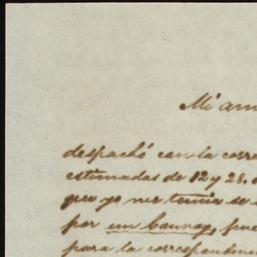 Mi am
despachó con la corre
estimadas de 12 y 28. d
que yo no tenia se
por un
para la correspondenc